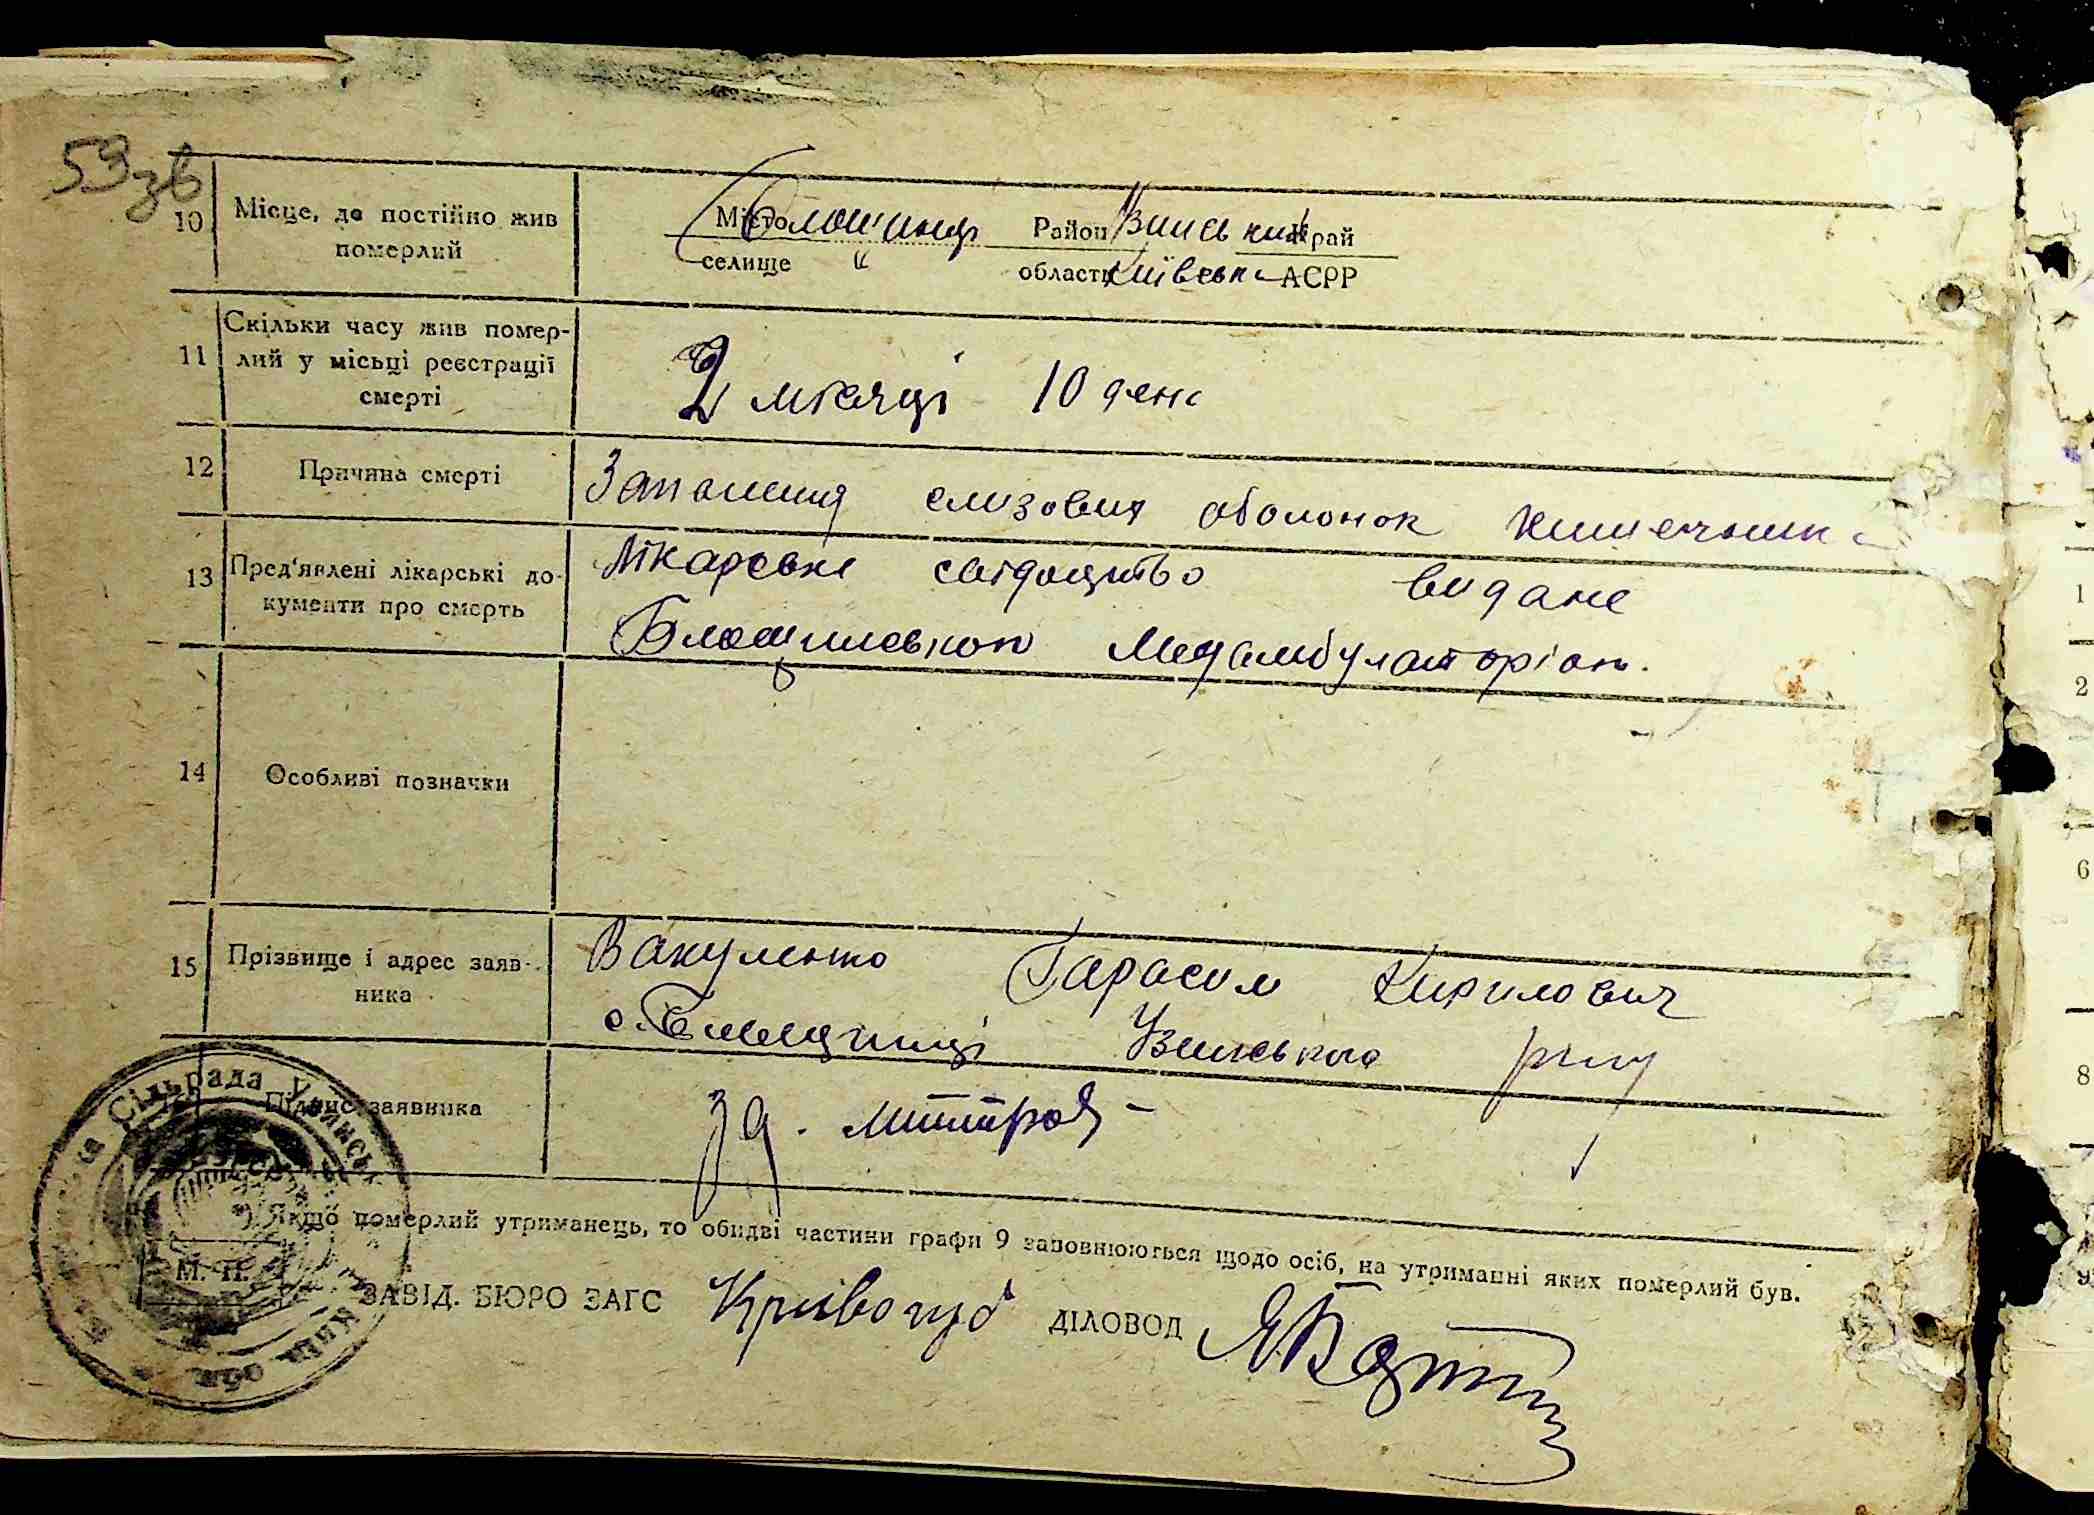 53зв
10 Місце, де постійно жив померлий
Місто Блощинці Район Узинський край
селище " область Київська АСРР
11 Скільки часу жив помер-
лий у місьці реєстрації
смерті
2 місяці 10 день
12 Причина смерті
Запалення слизових оболонок кишечника
13 Пред'явлені лікарські до-
кументи про смерть
Лікарське свідоцтво видане
Блощинською Медамбулаторією.
14 Особливі позначки
15 Прізвище і адрес заяв-
ника
Вакуленко Гарасим Кирилович
с. Блощинці Узинського р-ну
Підпис заявника
Сільрада Узинськ
*) Якщо померлий утриманець, то обидві частини графи 9 заповнюються щодо осіб, на утриманні яких померлий був.
М. П.
ЗАВІД. БЮРО ЗАГС ДІЛОВОД
1
2
6
8
9